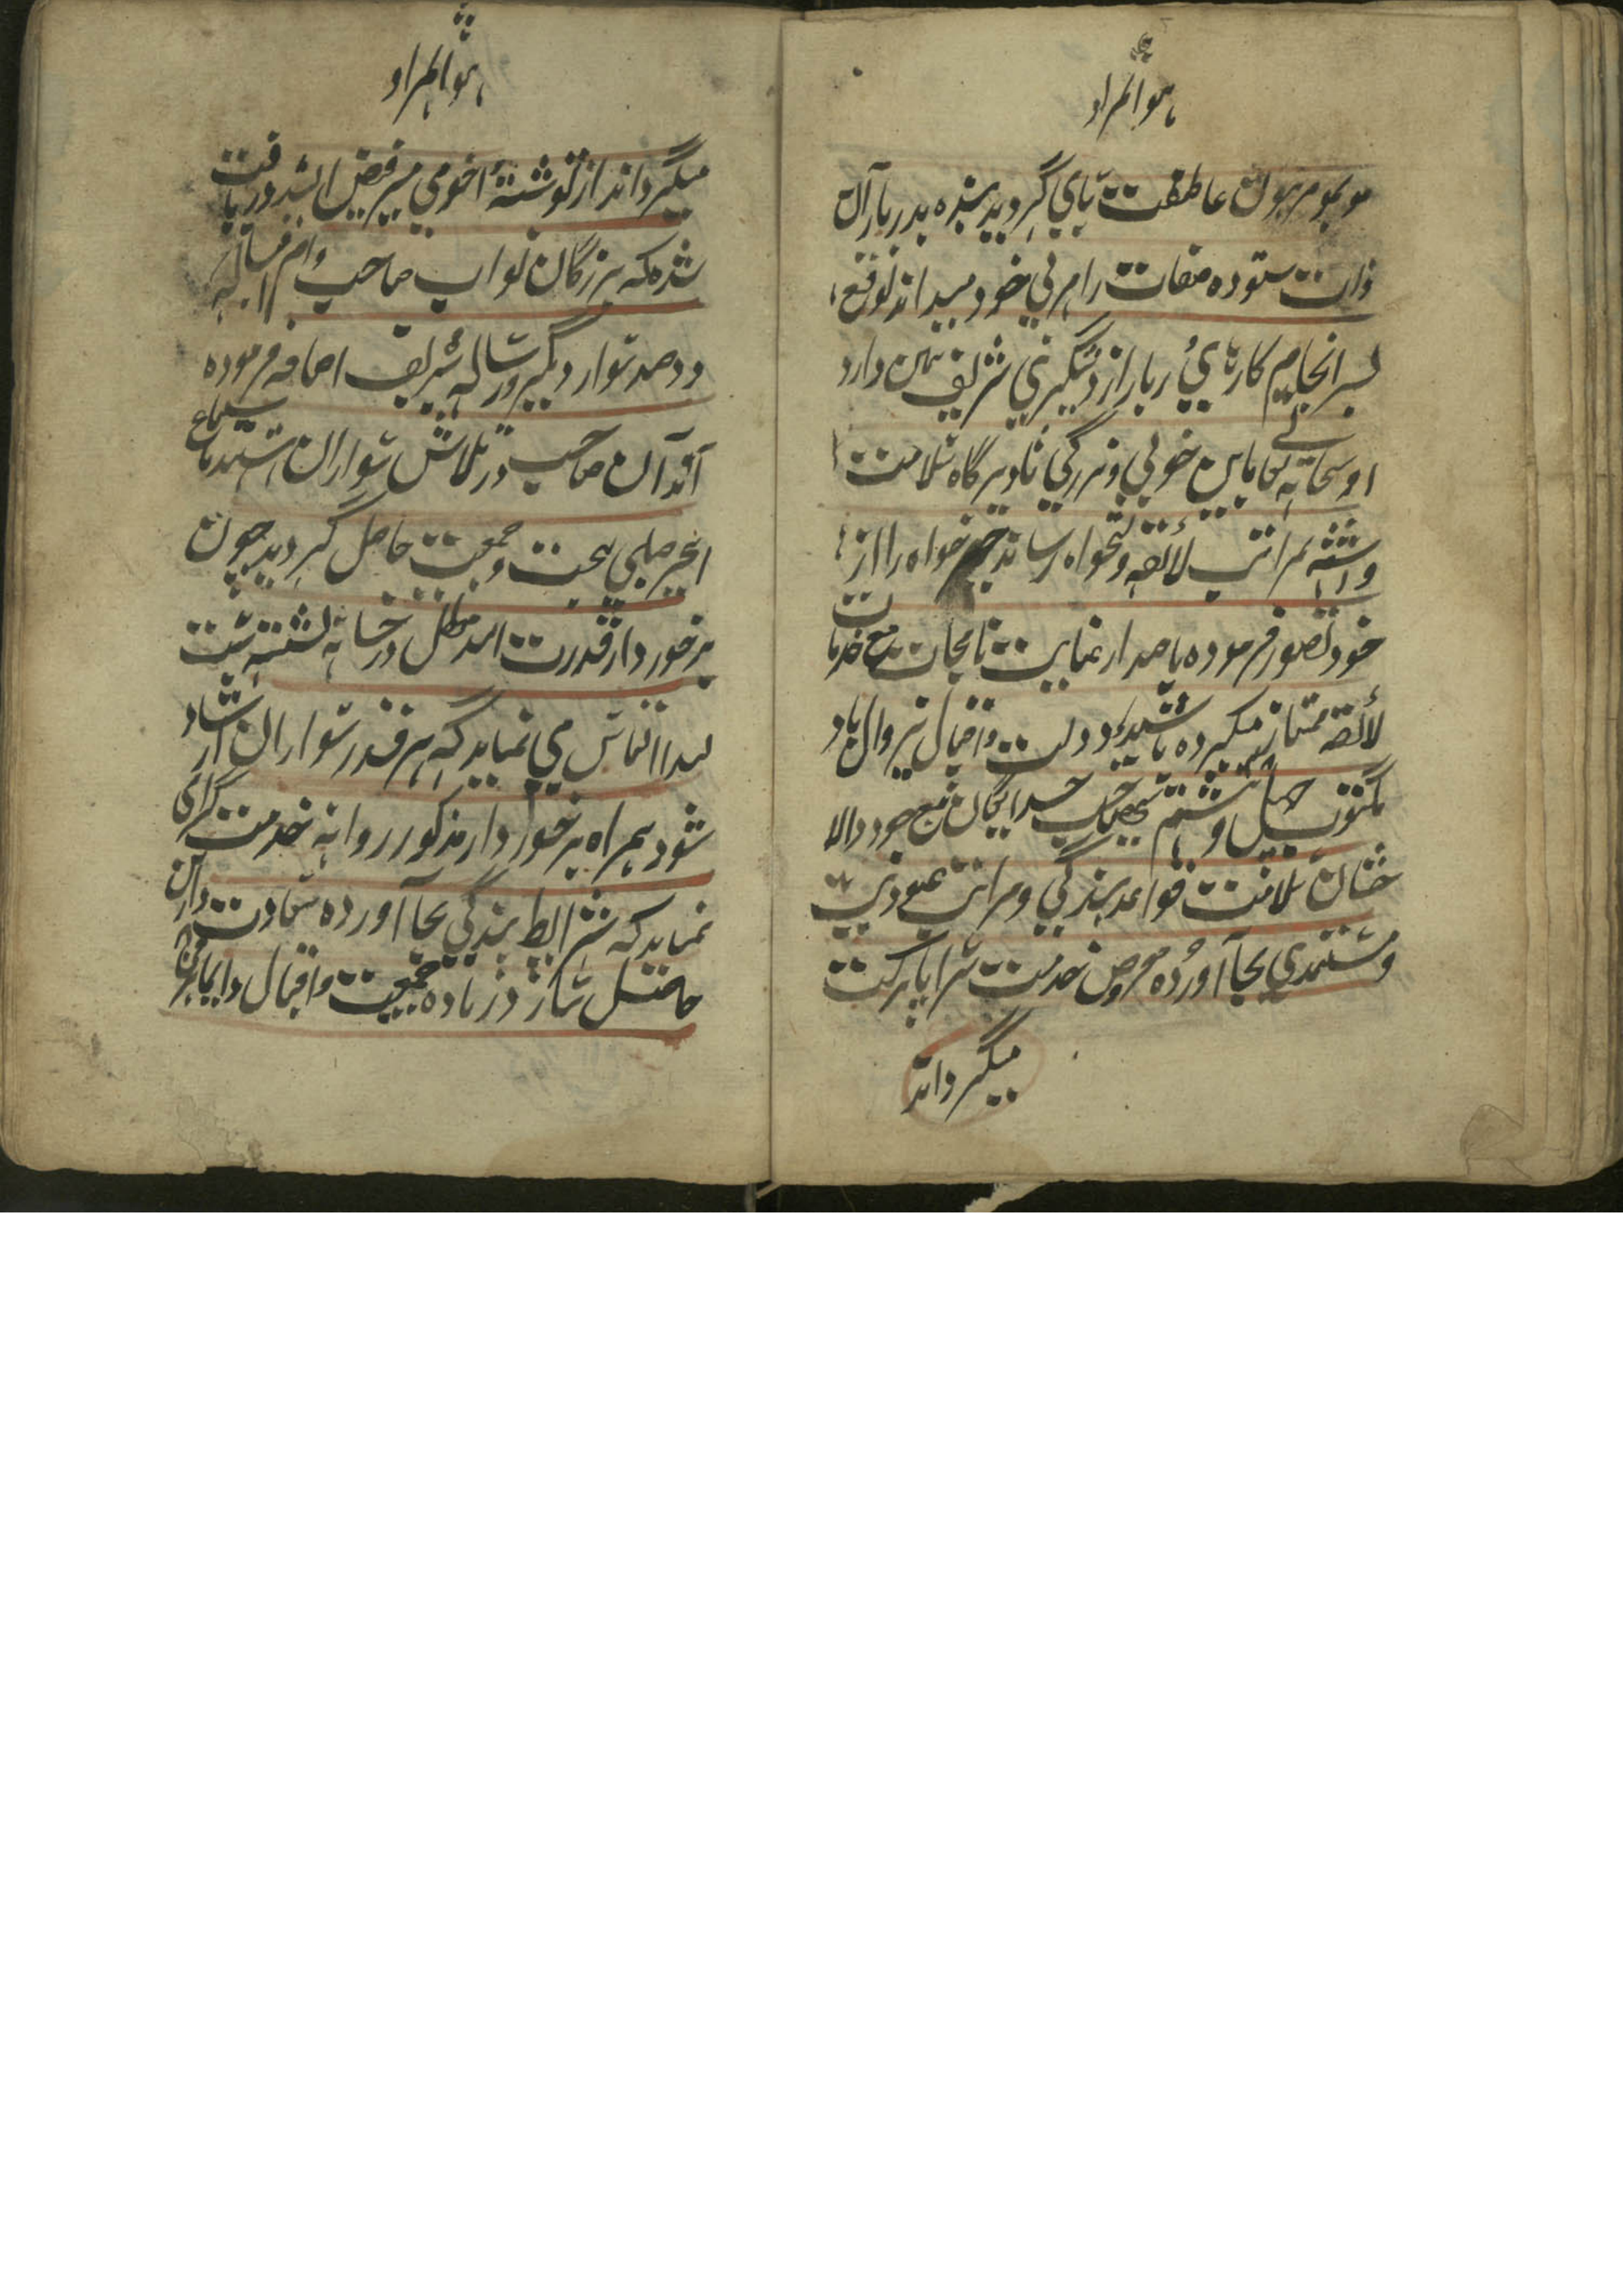 هو المراد
موبمو مرهون عاطفت بای گردید بنده بدربار آن
ذات ستوده صفات را مربی خود میداند توقع
بسر انجام کارهای دربار از دستگیری شریف همین دارد
او سبحانه تعالے باین خوبی و بزرگی تا دیرگاه سلامت
داشته بمراتب لائقه و دلخواه رساند خیر خواه را از
خود تصور فرموده باصدار عنایت نامجات مع خدمات
لائقه ممتاز میکرده باشند دولت و اقبال بیزوال باد
مکتوب چهل و هشتم صاحب خدایگان منبع جود والا
شان سلامت قواعد بندگی و مراتب عبودیت
و مستمندی بجا آورده معروض خدمت سراپا برکت
میگرداند
هو المراد
میگرداند از نوشتهٔ اخوی میر فیض اللہ دریافت
شده که بزرگان نواب صاحب وام اقباله
دو صد سوار دیگر در رساله شریف اضافه فرموده
اند آن صاحب در تلاش سواران هستند باستماع
اخیر صلبی بهجت و جمعیت حاصل گردید چون
برخوردار قدرت اللہ معطل در خانه نشسته است
لهذا التماس می نماید که هر قدر سواران ارشاد
شود همراه برخوردار مذکور روانه خدمت گرامی
نماید که شرایط بندگی بجا آورده سعادت دارین
حاصل سازد زیاده جمعیت و اقبال دایما